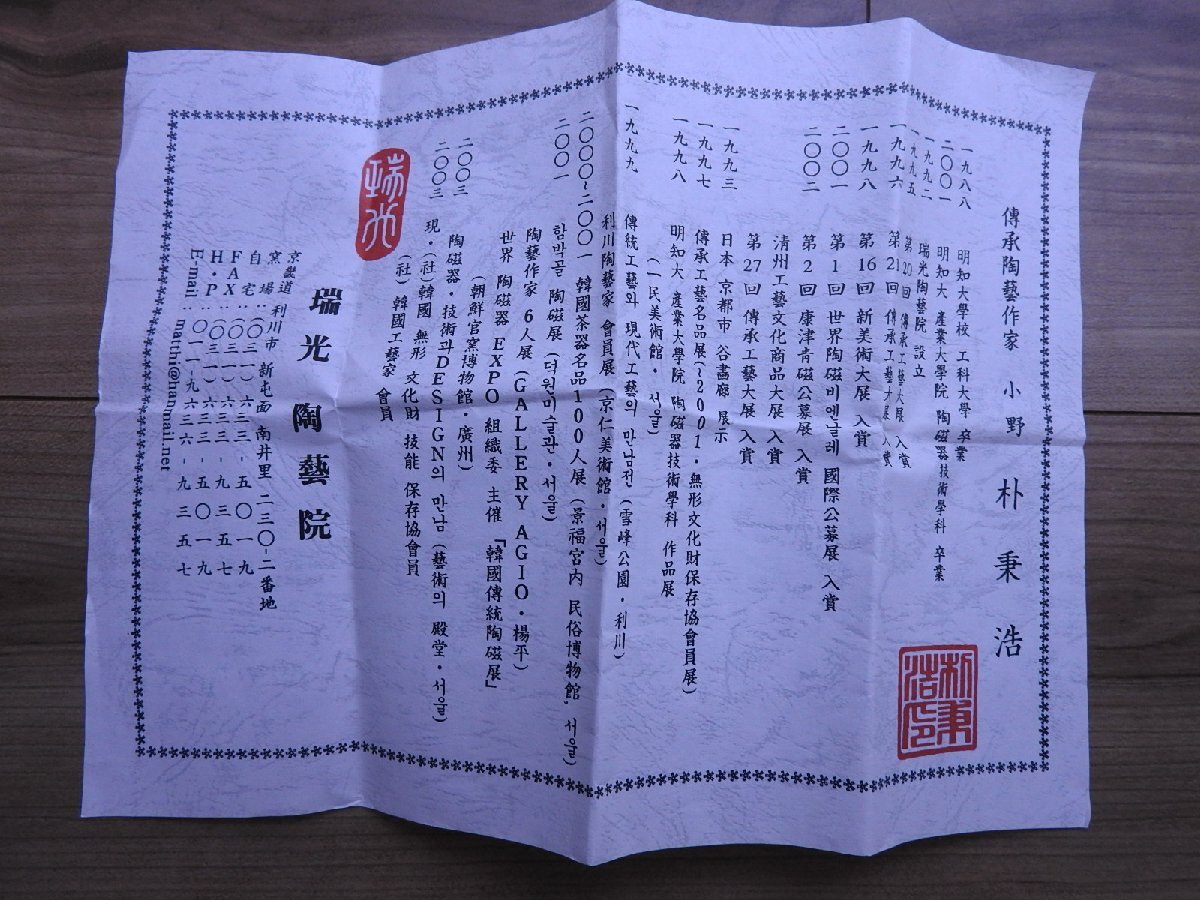 傳承陶藝作家 小野 朴秉浩
朴秉浩印
一九八八 明知大學校 工科大學 卒業
二〇〇一 明知大 產業大學院 陶磁器技術學科 卒業
一九九二 瑞光陶藝院 設立
一九九五 第20回 傳承工藝大展 入賞
一九九六 第21回 傳承工藝大展 入賞
一九九八 第16回 新美術大展 入賞
二〇〇一 第1回 世界陶磁비엔날레 國際公募展 入賞
二〇〇二 第2回 康津青磁公募展 入賞
清州工藝文化商品大展 入賞
第27回 傳承工藝大展 入賞
一九九三 日本 京都市 谷畫廊 展示
一九九七 傳承工藝名品展(~2001·無形文化財保存協會員展)
一九九八 明知大 產業大學院 陶磁器技術學科 作品展
(一民美術館·서울)
一九九九 傳統工藝와 現代工藝의 만남전 (雪峰公園·利川)
利川陶藝家 會員展 (京仁美術館·서울)
二〇〇〇~二〇〇一 韓國茶器名品100人展 (景福宮內 民俗博物館·서울)
二〇〇一 함박골 陶磁展 (덕원미술관·서울)
陶藝作家 6人展 (GALLERY AGIO·楊平)
世界 陶磁器 EXPO 組織委 主催 「韓國傳統陶磁展」
(朝鮮官窯博物館·廣州)
二〇〇三 陶磁器·技術과 DESIGN의 만남 (藝術의 殿堂·서울)
二〇〇三 現·(社)韓國 無形 文化財 技能 保存協會員
(社)韓國工藝家 會員
瑞光
瑞光陶藝院
京畿道 利川市 新屯面 南井里 二三〇-二番地
窯場:(〇三一)六三三-五〇一九
自宅:(〇三一)六三三-五〇一九
FAX:(〇三一)六三二-九三五七
H·P:〇一一-九六三六-九三五七
E-mail: marthi@hanmail.net